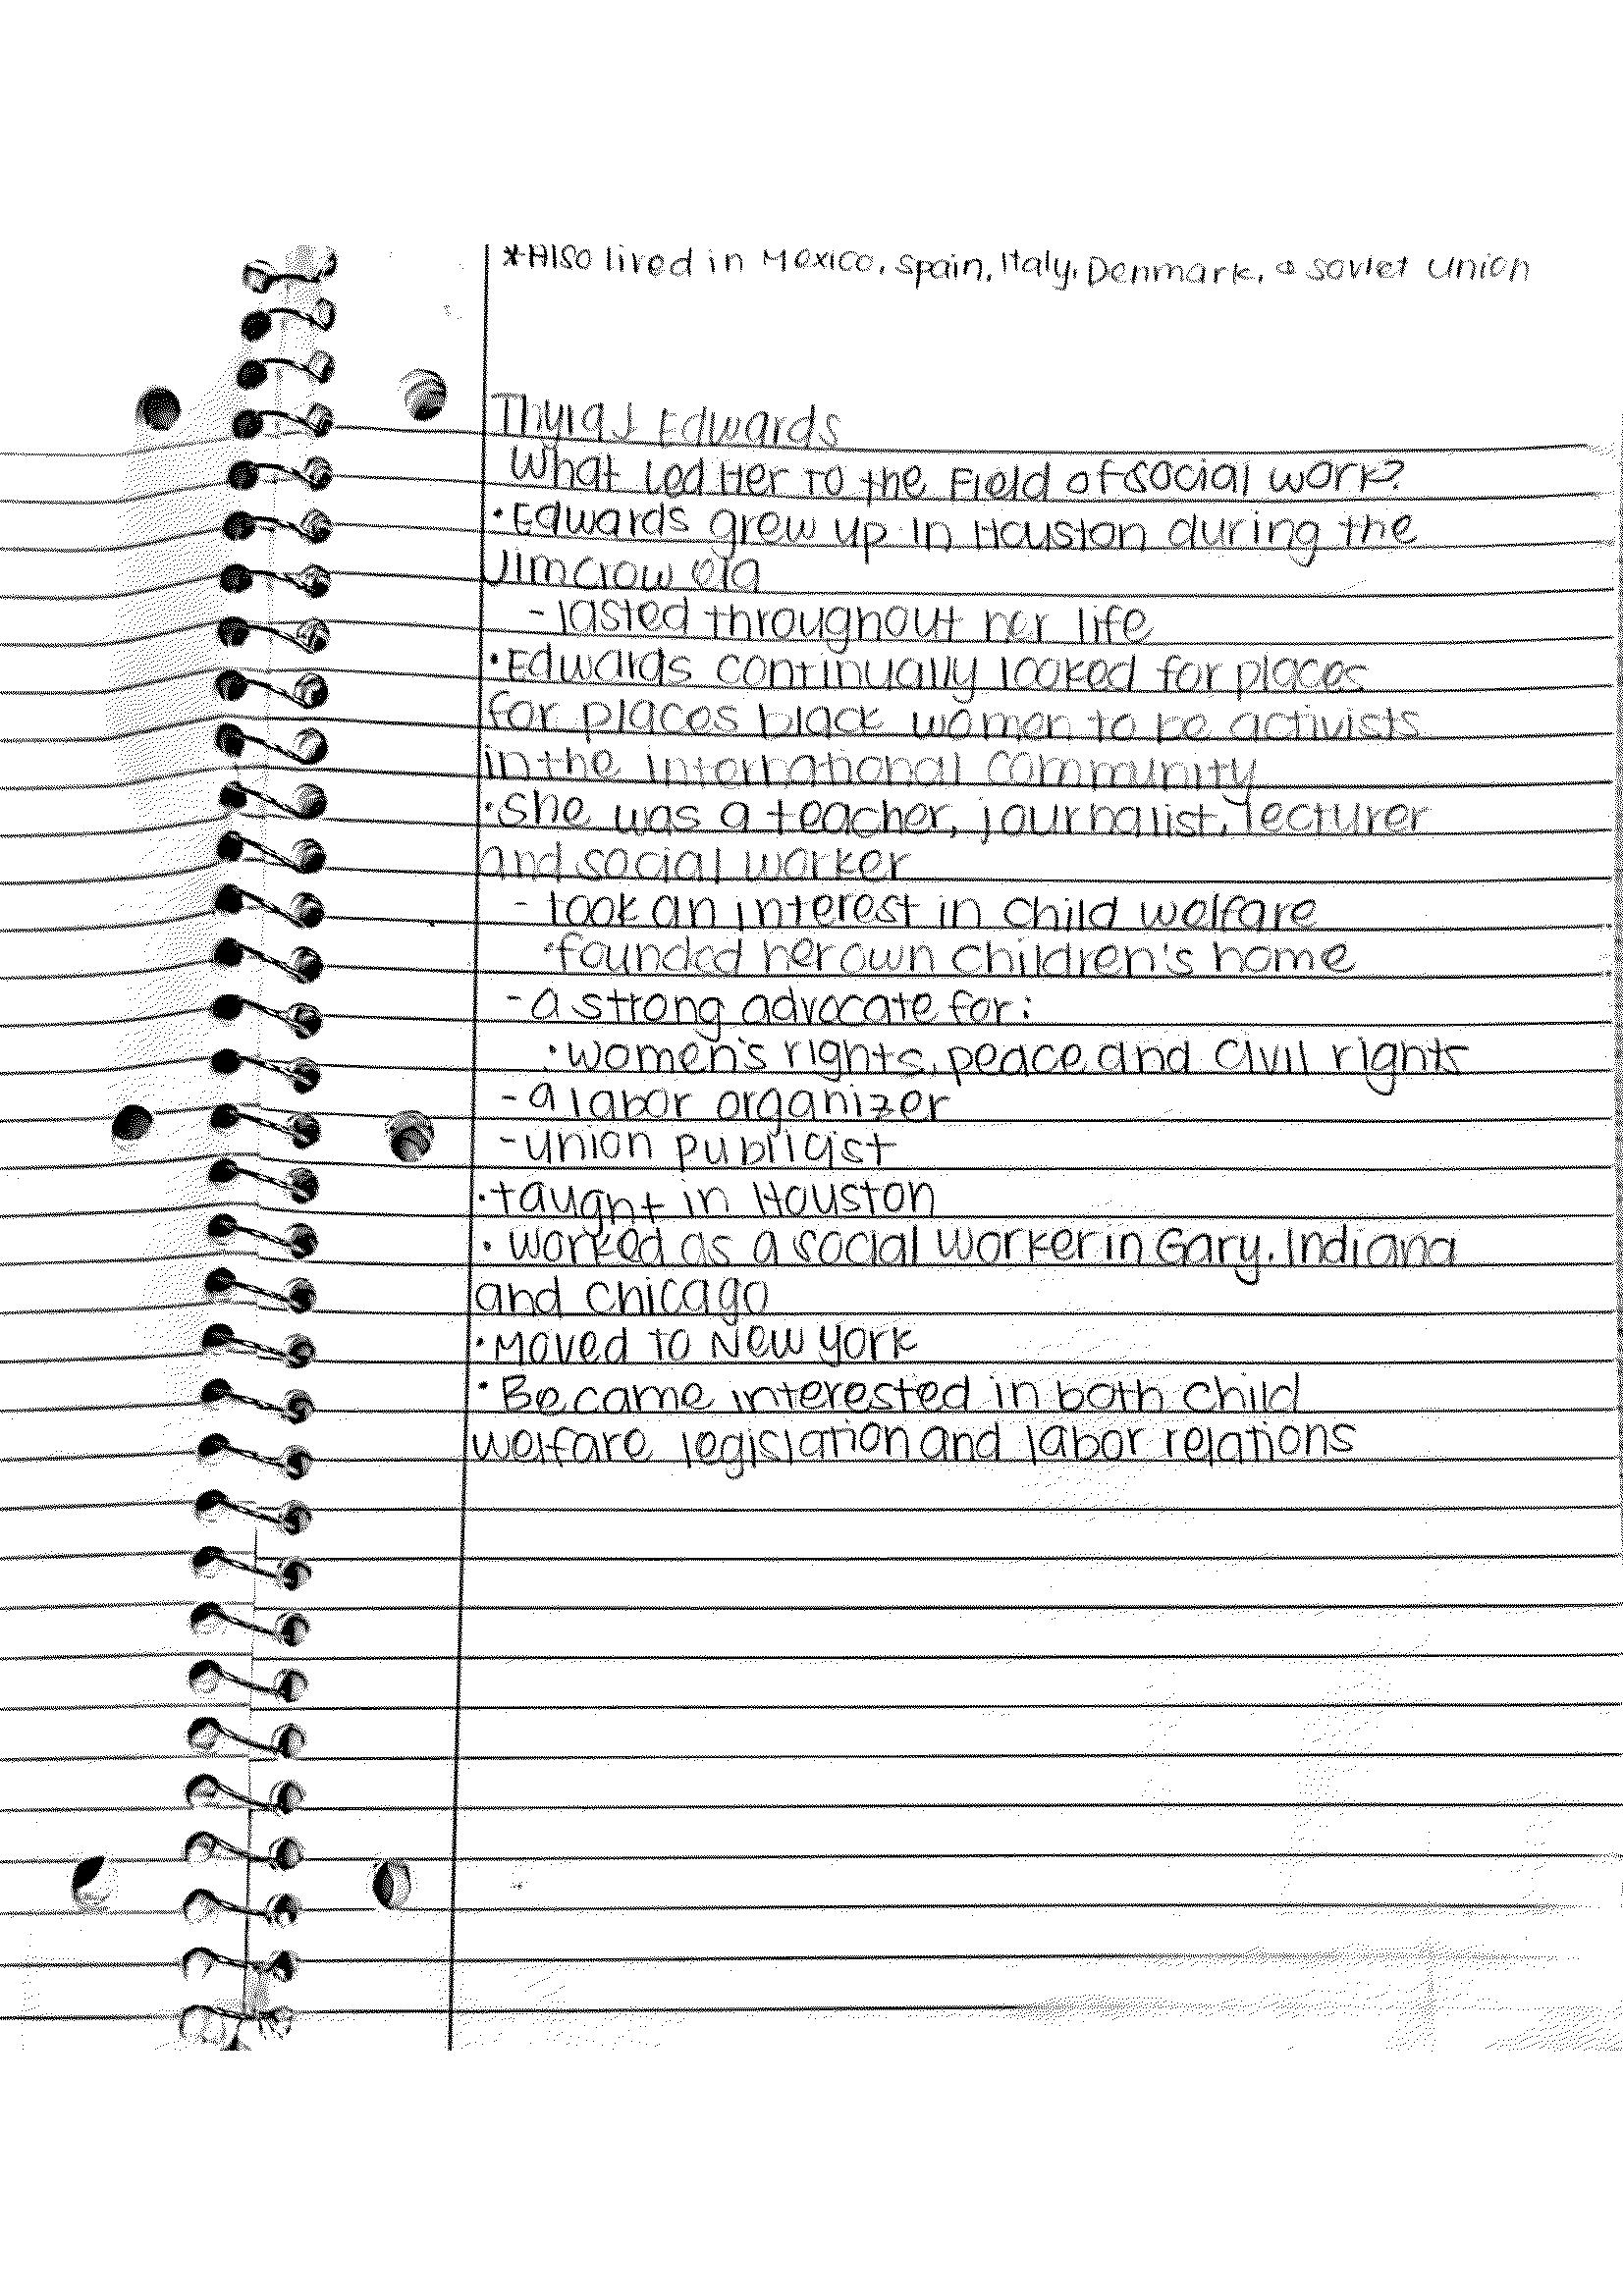 *Also lived in Mexico, Spain, Italy, Denmark, & Soviet Union
Thyra J Edwards
What Led Her To the Field of social work?
• Edwards grew up in Houston during the
Jim crow era
- lasted throughout her life
• Edwards continually looked for places
for places black women to be activists
in the international community
• she was a teacher, journalist, lecturer
and social worker
- took an interest in child welfare
• founded her own children's home
- a strong advocate for:
• women's rights, peace and civil rights
- a labor organizer
- union publicist
• taught in Houston
• worked as a social worker in Gary, Indiana
and Chicago
• Moved to New York
• Became interested in both child
welfare legislation and labor relations